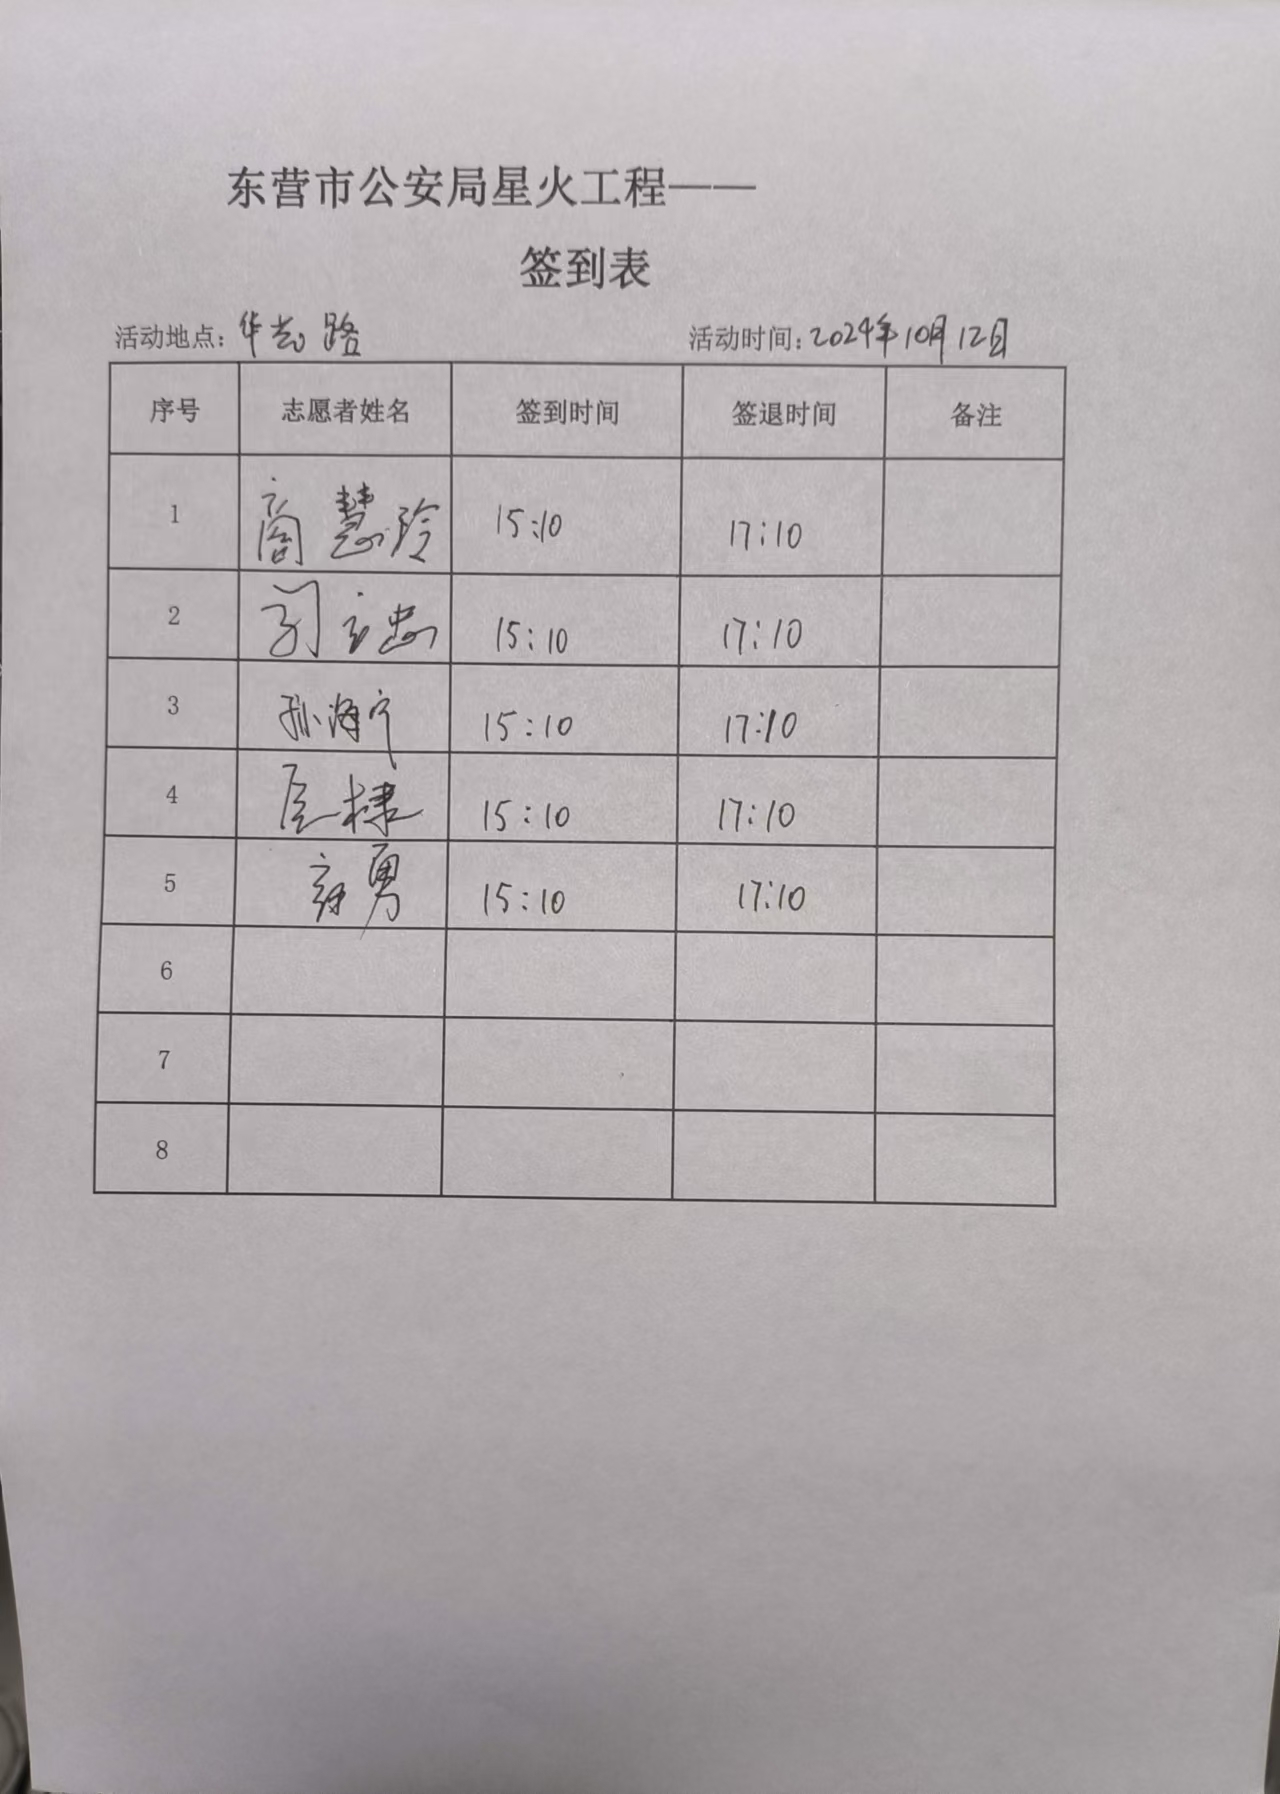 东营市公安局星火工程——
签到表
活动地点：华 路 活动时间：2024年10月12日
序号 志愿者姓名 签到时间 签退时间 备注
1 商慧玲 15:10 17:10
2 刘志忠 15:10 17:10
3 孙海宁 15:10 17:10
4 15:10 17:10
5 勇 15:10 17:10
6
7
8